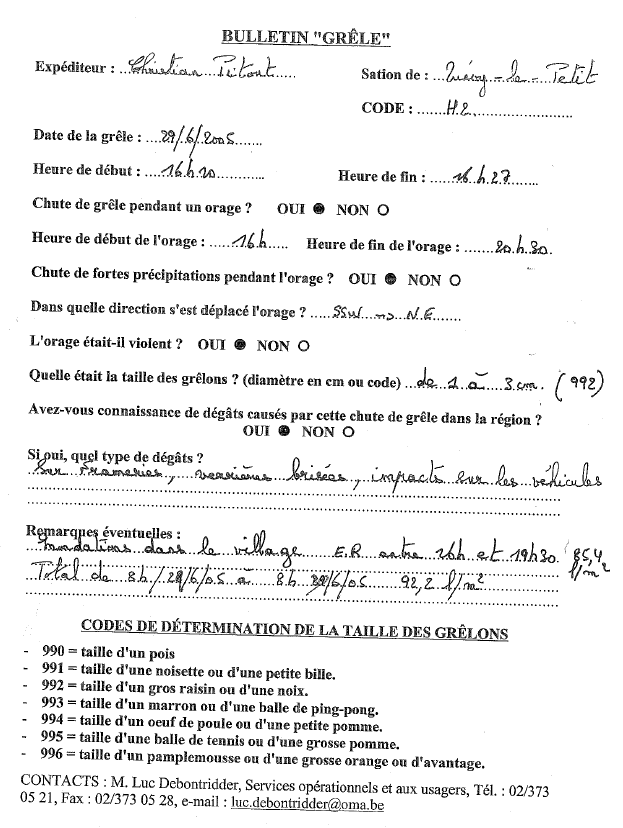 BULLETIN "GRÊLE"
Expéditeur : ...Christian Pitout.....
Sation de : ..Quévy-le-Petit
CODE : .......H2.
Date de la grêle : ...29/6/2005.......
Heure de début : ....16h20............
Heure de fin : .....16h27.......
Chute de grêle pendant un orage ? OUI ● NON O
Heure de début de l'orage : .....16h..... Heure de fin de l'orage : .......20h30.
Chute de fortes précipitations pendant l'orage ? OUI ● NON O
Dans quelle direction s'est déplacé l'orage ? ....SSW → N.E.......
L'orage était-il violent ? OUI ● NON O
Quelle était la taille des grêlons ? (diamètre en cm ou code) ...de 1 à 3 cm. (992)
Avez-vous connaissance de dégâts causés par cette chute de grêle dans la région ?
OUI ● NON O
Si oui, quel type de dégâts ?
Sur Frameries, verrières brisées, impacts sur les véhicules
Remarques éventuelles :
Inondations dans le village E.R entre 16h et 19h30. 85,4 l/m²
Total de 8h/29/6/05 à 8h 30/6/05 92,2 l/m²
CODES DE DÉTERMINATION DE LA TAILLE DES GRÊLONS
- 990 = taille d'un pois
- 991 = taille d'une noisette ou d'une petite bille.
- 992 = taille d'un gros raisin ou d'une noix.
- 993 = taille d'un marron ou d'une balle de ping-pong.
- 994 = taille d'un oeuf de poule ou d'une petite pomme.
- 995 = taille d'une balle de tennis ou d'une grosse pomme.
- 996 = taille d'un pamplemousse ou d'une grosse orange ou d'avantage.
CONTACTS : M. Luc Debontridder, Services opérationnels et aux usagers, Tél. : 02/373
05 21, Fax : 02/373 05 28, e-mail : luc.debontridder@oma.be